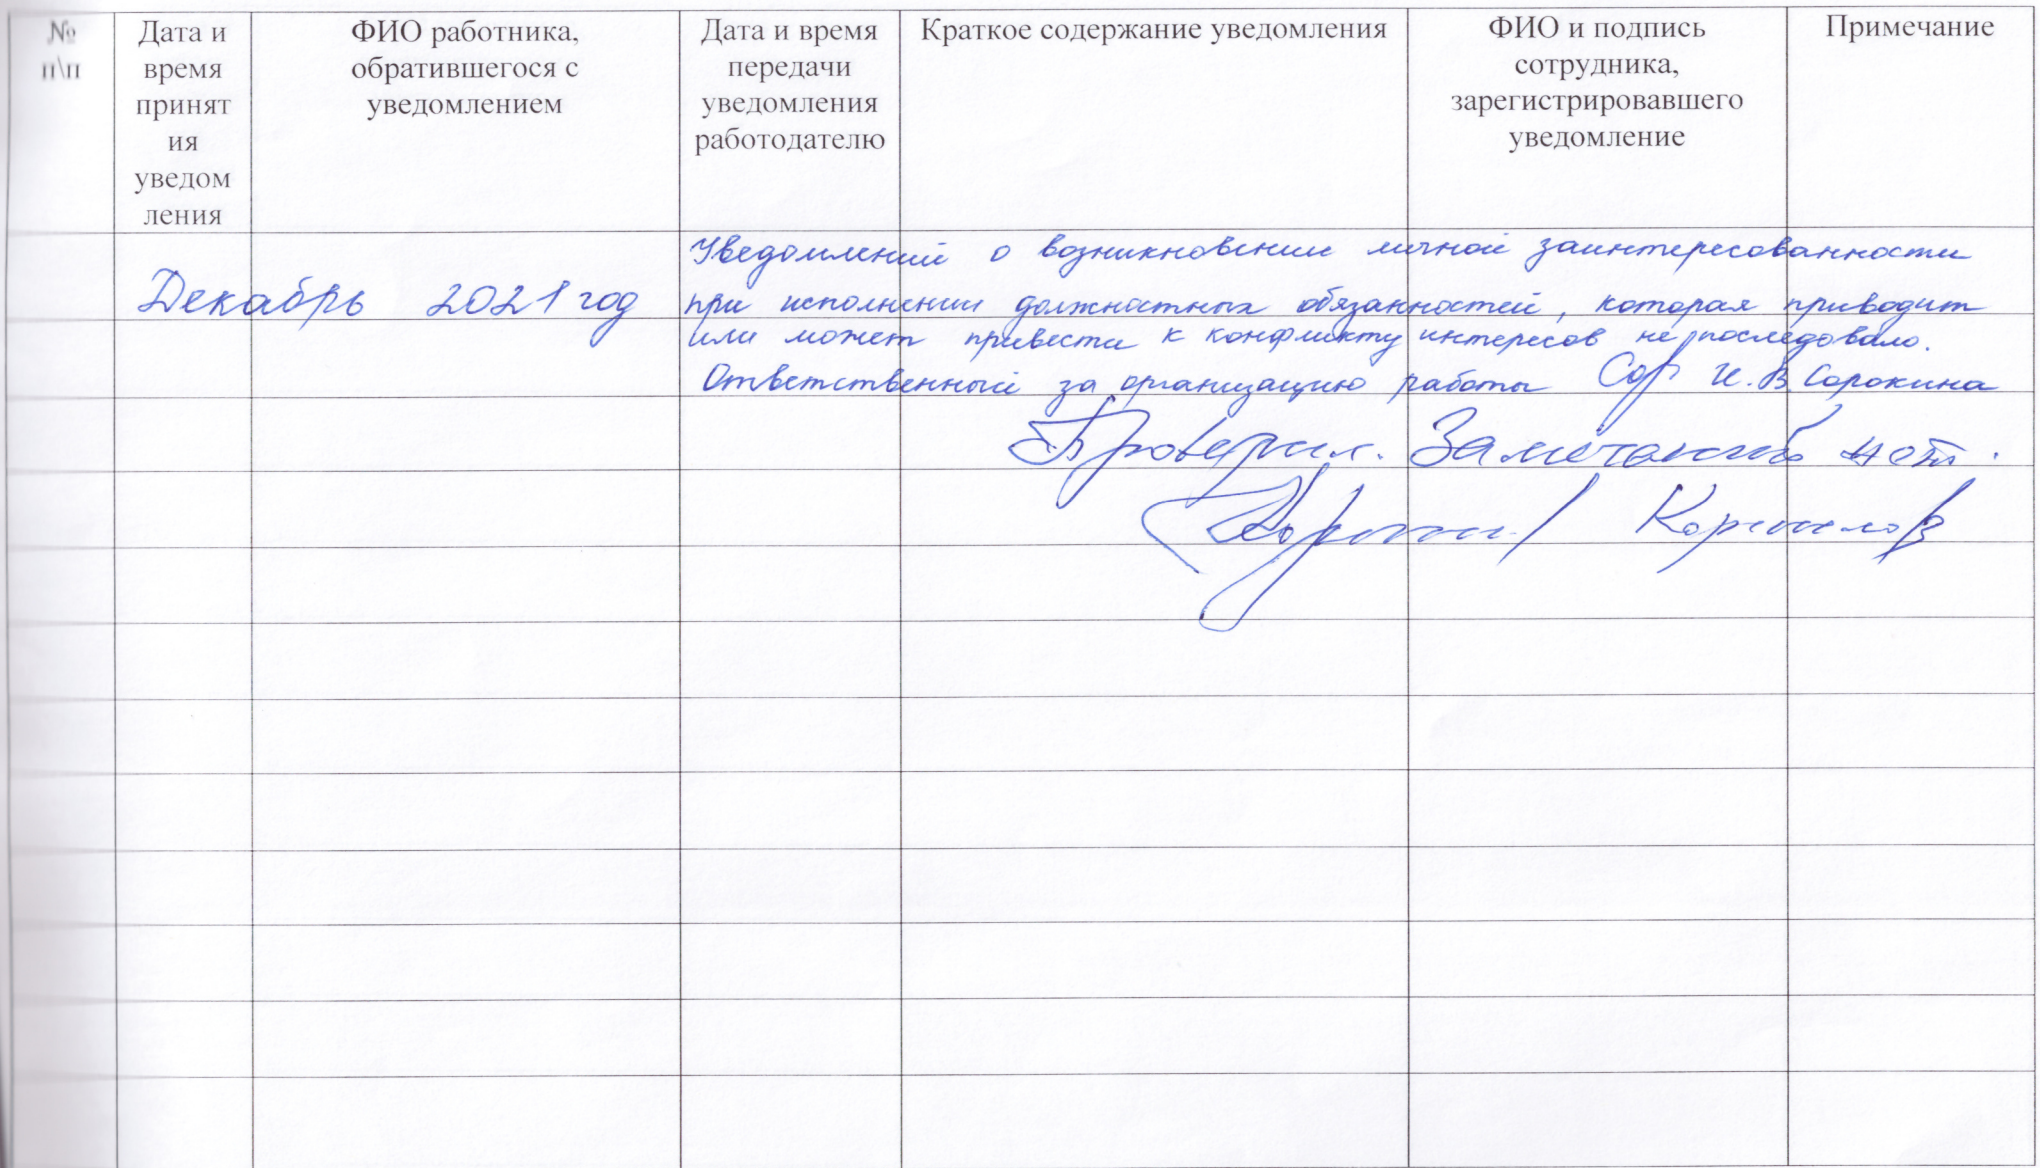 №
п\п
Дата и
время
принят
ия
уведом
ления
ФИО работника,
обратившегося с
уведомлением
Дата и время
передачи
уведомления
работодателю
Краткое содержание уведомления
ФИО и подпись
сотрудника,
зарегистрировавшего
уведомление
Примечание
Декабрь 2021 год
Уведомлений о возникновении личной заинтересованности
при исполнении должностных обязанностей, которая приводит
или может привести к конфликту интересов не последовало.
Ответственный за организацию работы Сор И.В Сорокина
Проверил. Замечаний нет.
Корнилов